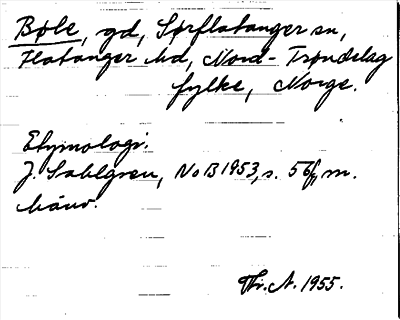 Bøle, gd, Sørflatanger sn,
Flatanger hd, Nord-Trøndelag
fylke, Norge.
Etymologi.
J. Sahlgren, NoB 1953, s. 56f, m.
hänv.
Th. A. 1955.